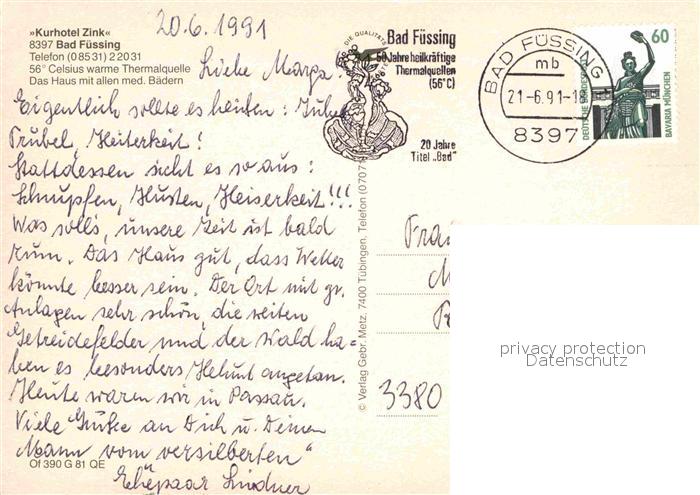 »Kurhotel Zink«
8397 Bad Füssing
Telefon (0 85 31) 2 20 31
56° Celsius warme Thermalquelle
Das Haus mit allen med. Bädern
20.6.1991
Liebe Marga!
Eigentlich sollte es heißen: Jubel
Trubel, Heiterkeit!
Stattdessen sieht es so aus:
Schnupfen, Husten, Heiserkeit!!!
Was soll's, unsere Zeit ist bald
rum. Das Haus gut, dass Wetter
könnte besser sein. Der Ort mit gr.
Anlagen sehr schön, die weiten
Getreidefelder und der Wald ha-
ben es besonders Helmut angetan.
Heute waren wir in Passau.
Viele Grüße an Dich u. Deinen
Mann vom versilberten"
Ehepaar Lindner
Of 390 G 81 QE
© Verlag Gebr. Metz, 7400 Tübingen, Telefon (070
DIE QUALITÄTS
Bad Füssing
50 Jahre heilkräftige
Thermalquellen
(56°C)
20 Jahre
Titel „Bad"
BAD FÜSSING
mb
21-6.91-1
8397
60
DEUTSCHE BUNDESPOST
BAVARIA MÜNCHEN
3380
privacy protection
Datenschutz